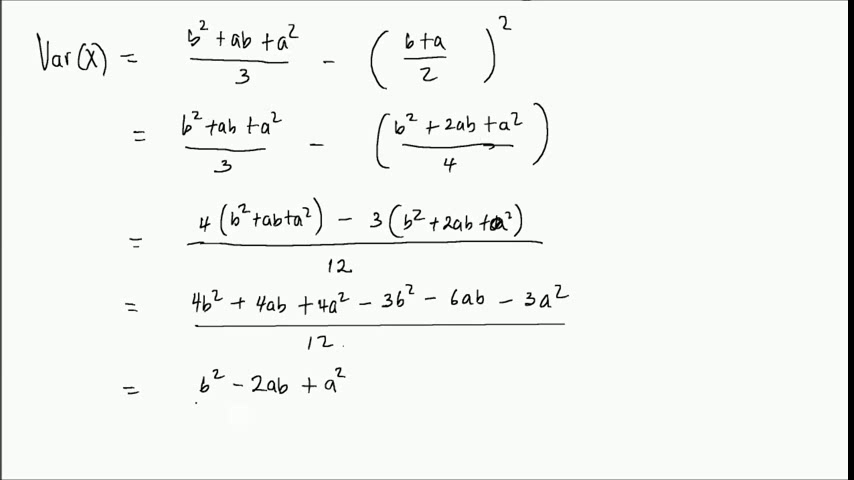 Var(X) = b² + ab + a² / 3 - ( b + a / 2 )²
= b² + ab + a² / 3 - ( b² + 2ab + a² / 4 )
= 4(b² + ab + a²) - 3(b² + 2ab + a²) / 12
= 4b² + 4ab + 4a² - 3b² - 6ab - 3a² / 12
= b² - 2ab + a²